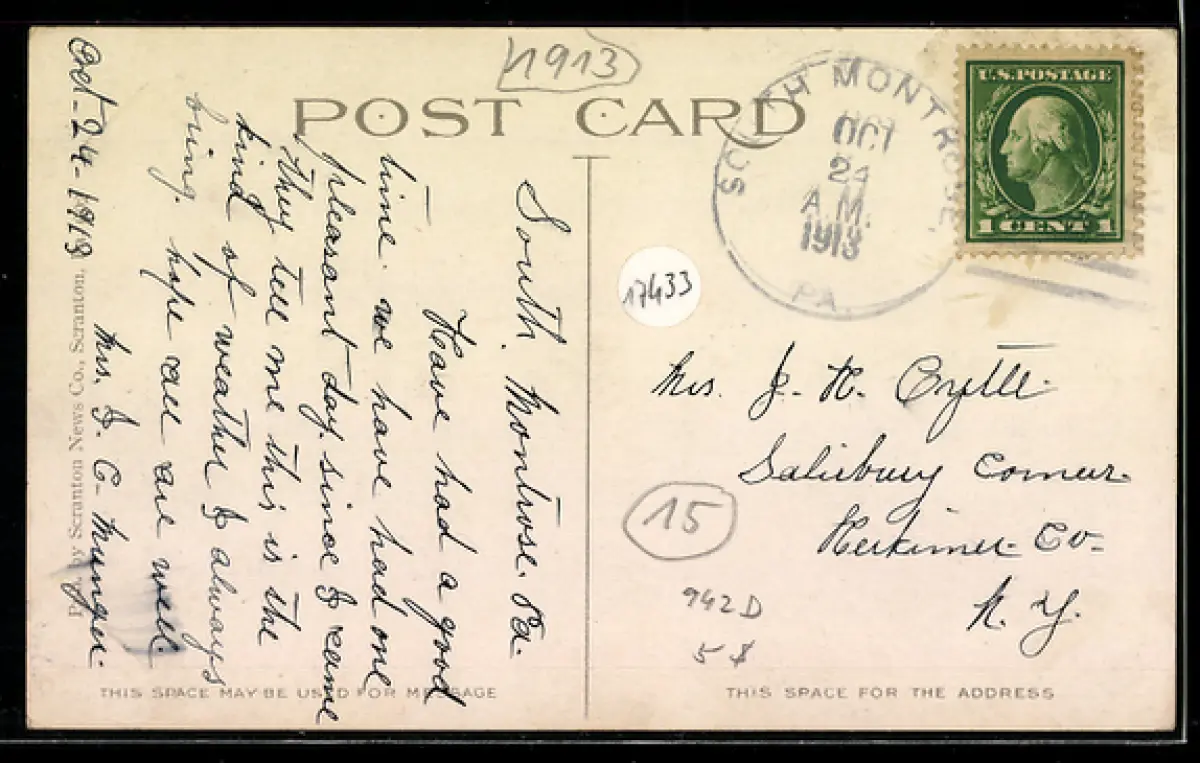 1913
POST CARD
SOUTH MONTROSE,
OCT
24
A.M.
1913
PA.
U.S. POSTAGE
1 CENT 1
South. Montrose. Pa.
Have had a good
time. we have had one
pleasant day. since I came
They tell me this is the
kind of weather I always
bring. hope all are well.
Mrs. I. C. Munger.
Oct-24-1913
by Scranton News Co., Scranton,
17433
Mrs. J. H.
Salisbury Corner.
Herkimer. Co-
N. Y.
15
942D
5 $
THIS SPACE MAY BE USED FOR MESSAGE
THIS SPACE FOR THE ADDRESS